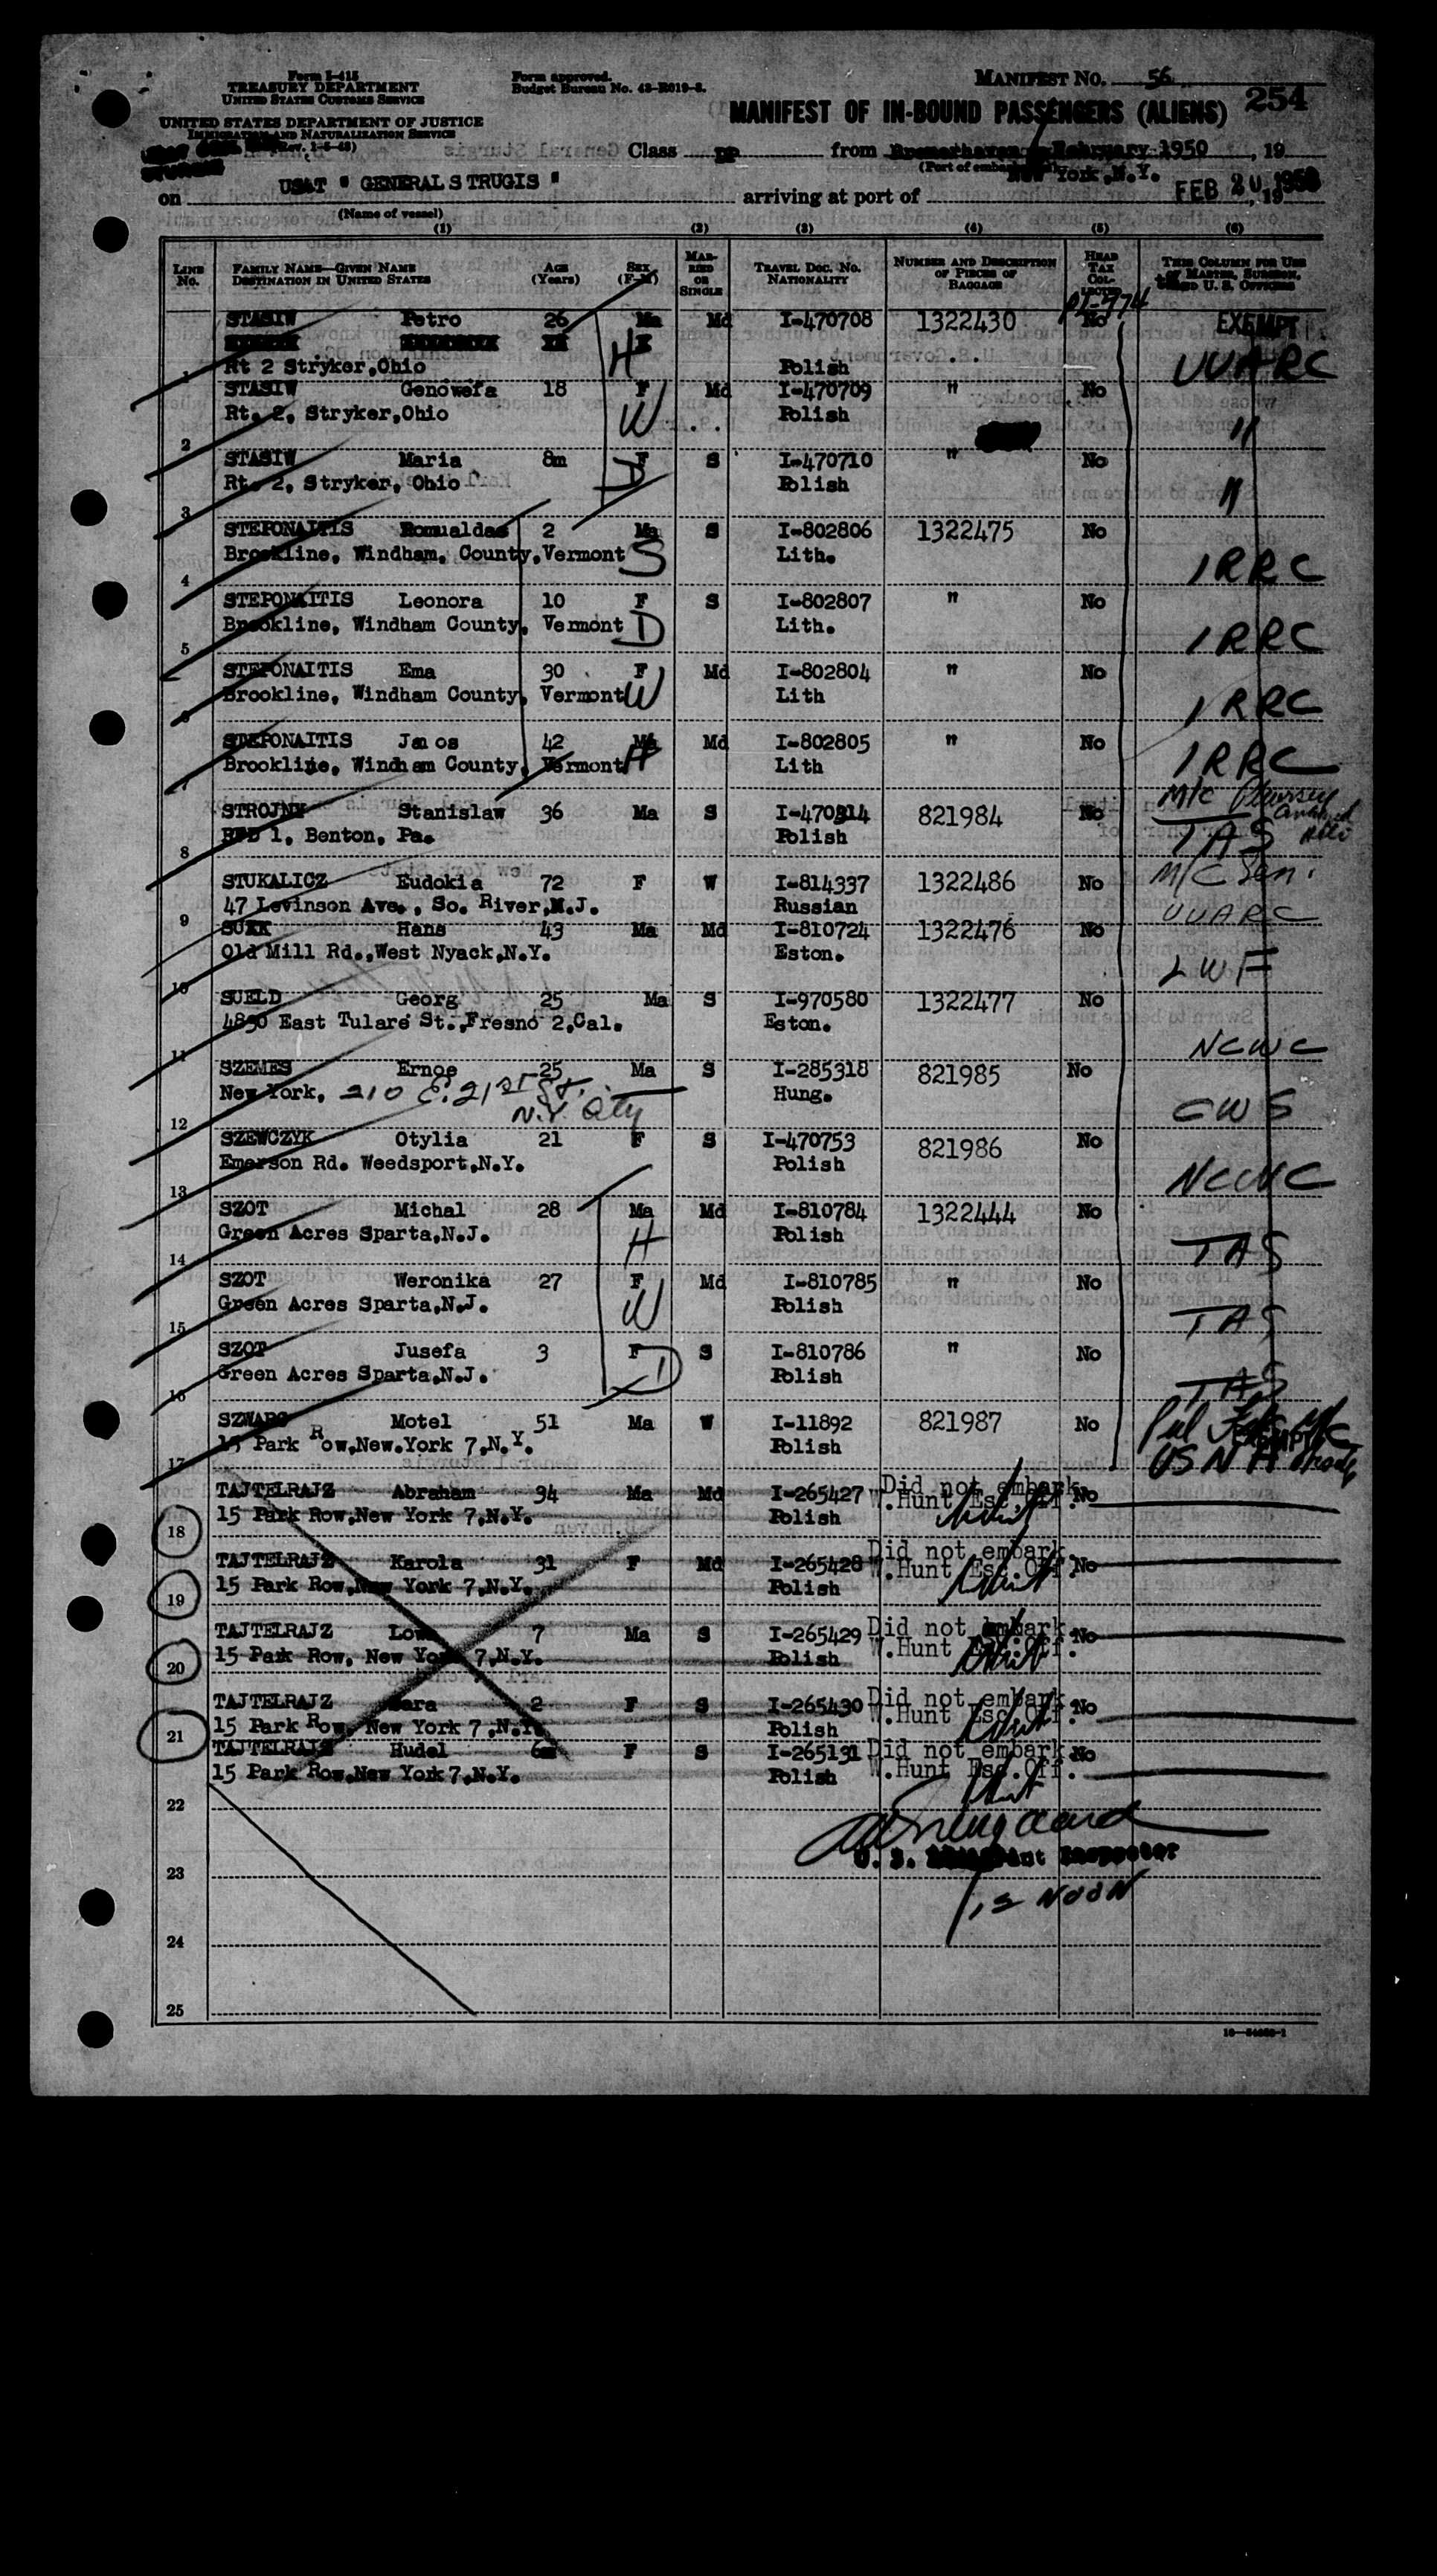 Form I-415
TREASURY DEPARTMENT
UNITED STATES CUSTOMS SERVICE
UNITED STATES DEPARTMENT OF JUSTICE
IMMIGRATION AND NATURALIZATION SERVICE
(Rev. 1-5-48)
Form approved.
Budget Bureau No. 43-R019-8.
MANIFEST NO. 56
MANIFEST OF IN-BOUND PASSENGERS (ALIENS) 254
Class DP from Bremerhaven February 1950, 19
(Port of embarkation)
on USAT " GENERAL S TRUGIS " arriving at port of New York, N.Y. FEB 20, 1950
(Name of vessel)
(1) (2) (3) (4) (5) (6)
LINE No. FAMILY NAME—GIVEN NAME DESTINATION IN UNITED STATES AGE (Years) SEX (F-M) MARRIED OR SINGLE TRAVEL DOC. NO. NATIONALITY NUMBER AND DESCRIPTION OF PIECES OF BAGGAGE HEAD TAX COLLECTED THIS COLUMN FOR USE OF MASTER, SURGEON, AND U. S. OFFICERS
STASIW Petro 26 Ma Md I-470708 1322430 No EXEMPT
1 Rt 2 Stryker,Ohio H Polish UUARC
STASIW Genowefa 18 F Md I-470709 " No
2 Rt. 2, Stryker,Ohio W Polish "
STASIW Maria 8m F S I-470710 " No
3 Rt. 2, Stryker, Ohio D Polish "
STEPONAITIS Romualdas 2 Ma S I-802806 1322475 No
4 Brookline, Windham, County,Vermont S Lith. IRRC
STEPONAITIS Leonora 10 F S I-802807 " No
5 Brookline, Windham County, Vermont D Lith. IRRC
STEPONAITIS Ema 30 F Md I-802804 " No
6 Brookline, Windham County, Vermont W Lith IRRC
STEPONAITIS Jn os 42 Ma Md I-802805 " No
7 Brookline, Windham County, Vermont H Lith IRRC
STROJNY Stanislaw 36 Ma S I-470814 821984 No M/C
8 RFD 1, Benton, Pa. Polish TAS
STUKALICZ Eudokia 72 F W I-814337 1322486 No M/C Sen.
9 47 Levinson Ave., So. River,N.J. Russian UUARC
SUKK Hans 43 Ma Md I-810724 1322476 No
10 Old Mill Rd.,West Nyack,N.Y. Eston. LWF
SUELD Georg 25 Ma S I-970580 1322477 No
11 4830 East Tulare St.,Fresno 2,Cal. Eston. NCWC
SZEMES Ernoe 25 Ma S I-285318 821985 No
12 New York, 210 E. 21st St. N.Y. City Hung. CWS
SZEWCZYK Otylia 21 F S I-470753 821986 No
13 Emerson Rd. Weedsport,N.Y. Polish NCWC
SZOT Michal 28 Ma Md I-810784 1322444 No
14 Green Acres Sparta,N.J. H Polish TAS
SZOT Weronika 27 F Md I-810785 " No
15 Green Acres Sparta,N.J. W Polish TAS
SZOT Jusefa 3 F S I-810786 " No
16 Green Acres Sparta,N.J. D Polish TAS
SZWARC Motel 51 Ma W I-11892 821987 No
17 15 Park Row,New.York 7,N.Y. Polish USNA
TAJTELRAJZ Abraham 34 Ma Md I-265427 Did not embark No
18 15 Park Row,New York 7,N.Y. Polish W.Hunt Esc.Off.
TAJTELRAJZ Karola 31 F Md I-265428 Did not embark No
19 15 Park Row,New York 7,N.Y. Polish W.Hunt Esc.Off.
TAJTELRAJZ 7 Ma S I-265429 Did not embark No
20 15 Park Row, New York 7,N.Y. Polish W.Hunt Esc.Off.
TAJTELRAJZ Sara 2 F S I-265430 Did not embark No
21 15 Park Row, New York 7,N.Y. Polish W.Hunt Esc.Off.
TAJTELRAJZ Hudel 6m F S I-265131 Did not embark No
22 15 Park Row,New York 7,N.Y. Polish W.Hunt Esc.Off.
U. S. Inspector
23
12 NOON
24
25